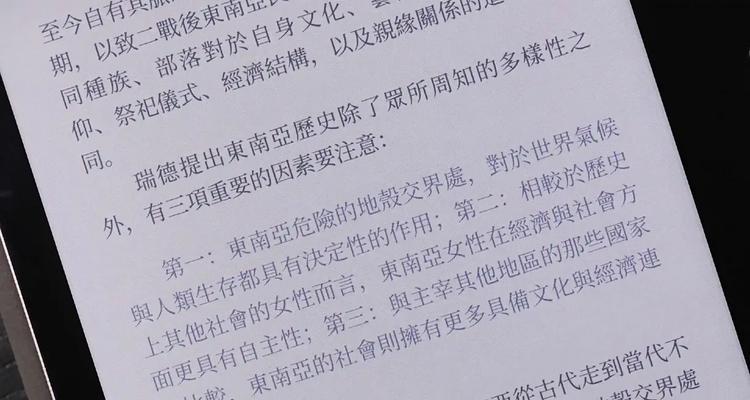 至今自有其
期，以致二戰後東南亞
同種族、部落對於自身文化、
仰、祭祀儀式、經濟結構，以及親緣關係的
同。
瑞德提出東南亞歷史除了眾所周知的多樣性之
外，有三項重要的因素要注意：
第一：東南亞危險的地殼交界處，對於世界氣候
與人類生存都具有決定性的作用；第二：相較於歷史
上其他社會的女性而言，東南亞女性在經濟與社會方
面更具有自主性；第三：與主宰其他地區的那些國家
比較，東南亞的社會則擁有更多具備文化與經濟連
從古代走到當代不
殼交界處